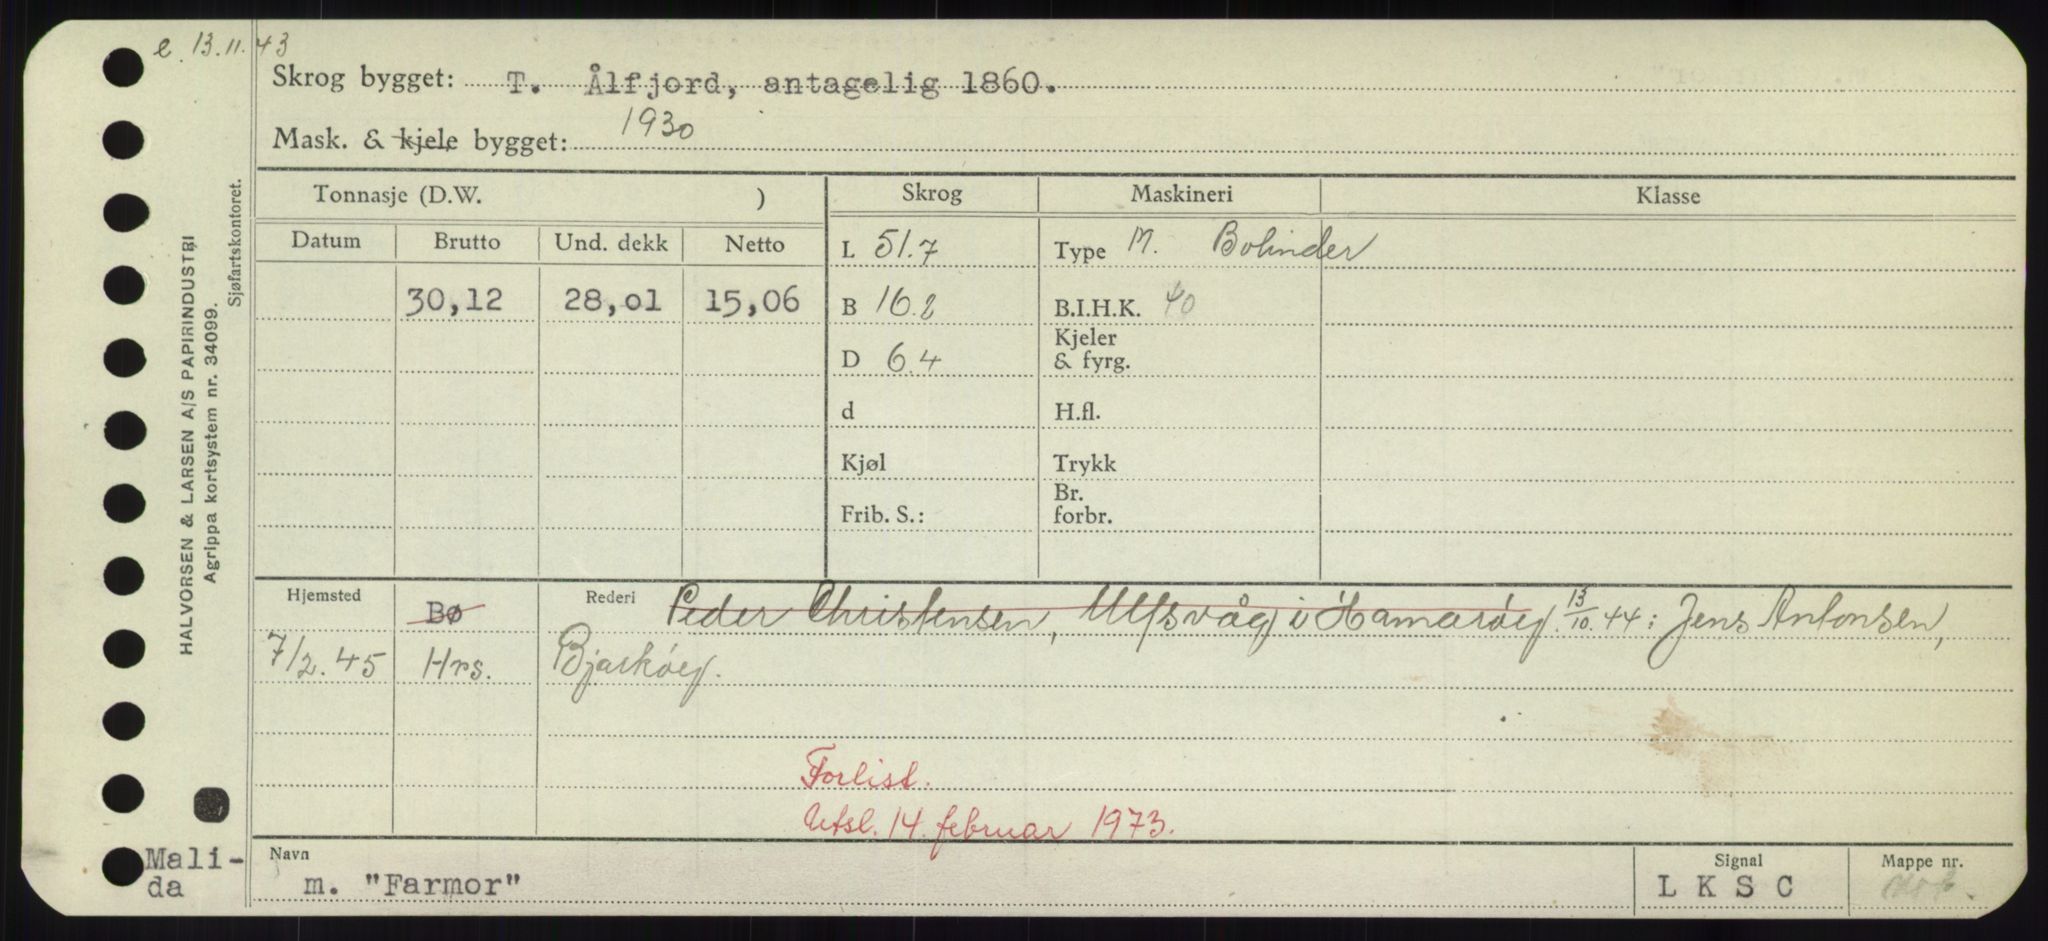 e. 13.11.43
Skrog bygget: T. Ålfjord, antagelig 1860.
Mask. & kjele bygget: 1930
Tonnasje (D.W. ) Skrog Maskineri Klasse
Datum Brutto Und. dekk Netto
L 51.7 Type M. Bolinder
30,12 28,01 15,06 B 16.2 B.I.H.K. 40
D 6.4 Kjeler & fyrg.
d H.fl.
Kjøl Trykk
Frib. S.: Br. forbr.
Hjemsted Bø Rederi Peder Christensen, Ulfsvåg i Hamarøy. 13/10.44: Jens Antonsen,
7/2.45 Hrs. Bjarkøy.
Forlist.
Utsl. 14. februar 1973.
Navn Signal Mappe nr.
Mali-
da
m. "Farmor" L K S C
HALVORSEN & LARSEN A/S PAPIRINDUSTRI
Agrippa kortsystem nr. 34099.
Sjøfartskontoret.